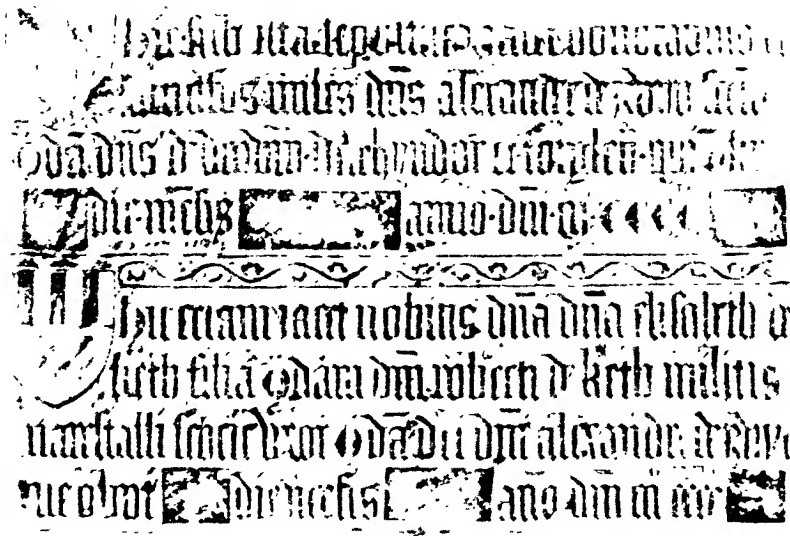 Hic sub ista sepultura iacet honorabilis et
famosus miles dn̄s alexander de yrvyn secūd
q̄dā dn̄s d' droum d' achyndor et forglen qui obiit
die mēsis anno dn̄i m cccc
Hic eciam iacet nobilis dn̄a dn̄a elisabeth de
keth filia q̄dam dn̄i roberti d' keth militis
marescalli scocie uxor q̄dā dci dn̄i alexandri de yrvyn
que obiit die mēsis ano dn̄i m cccc